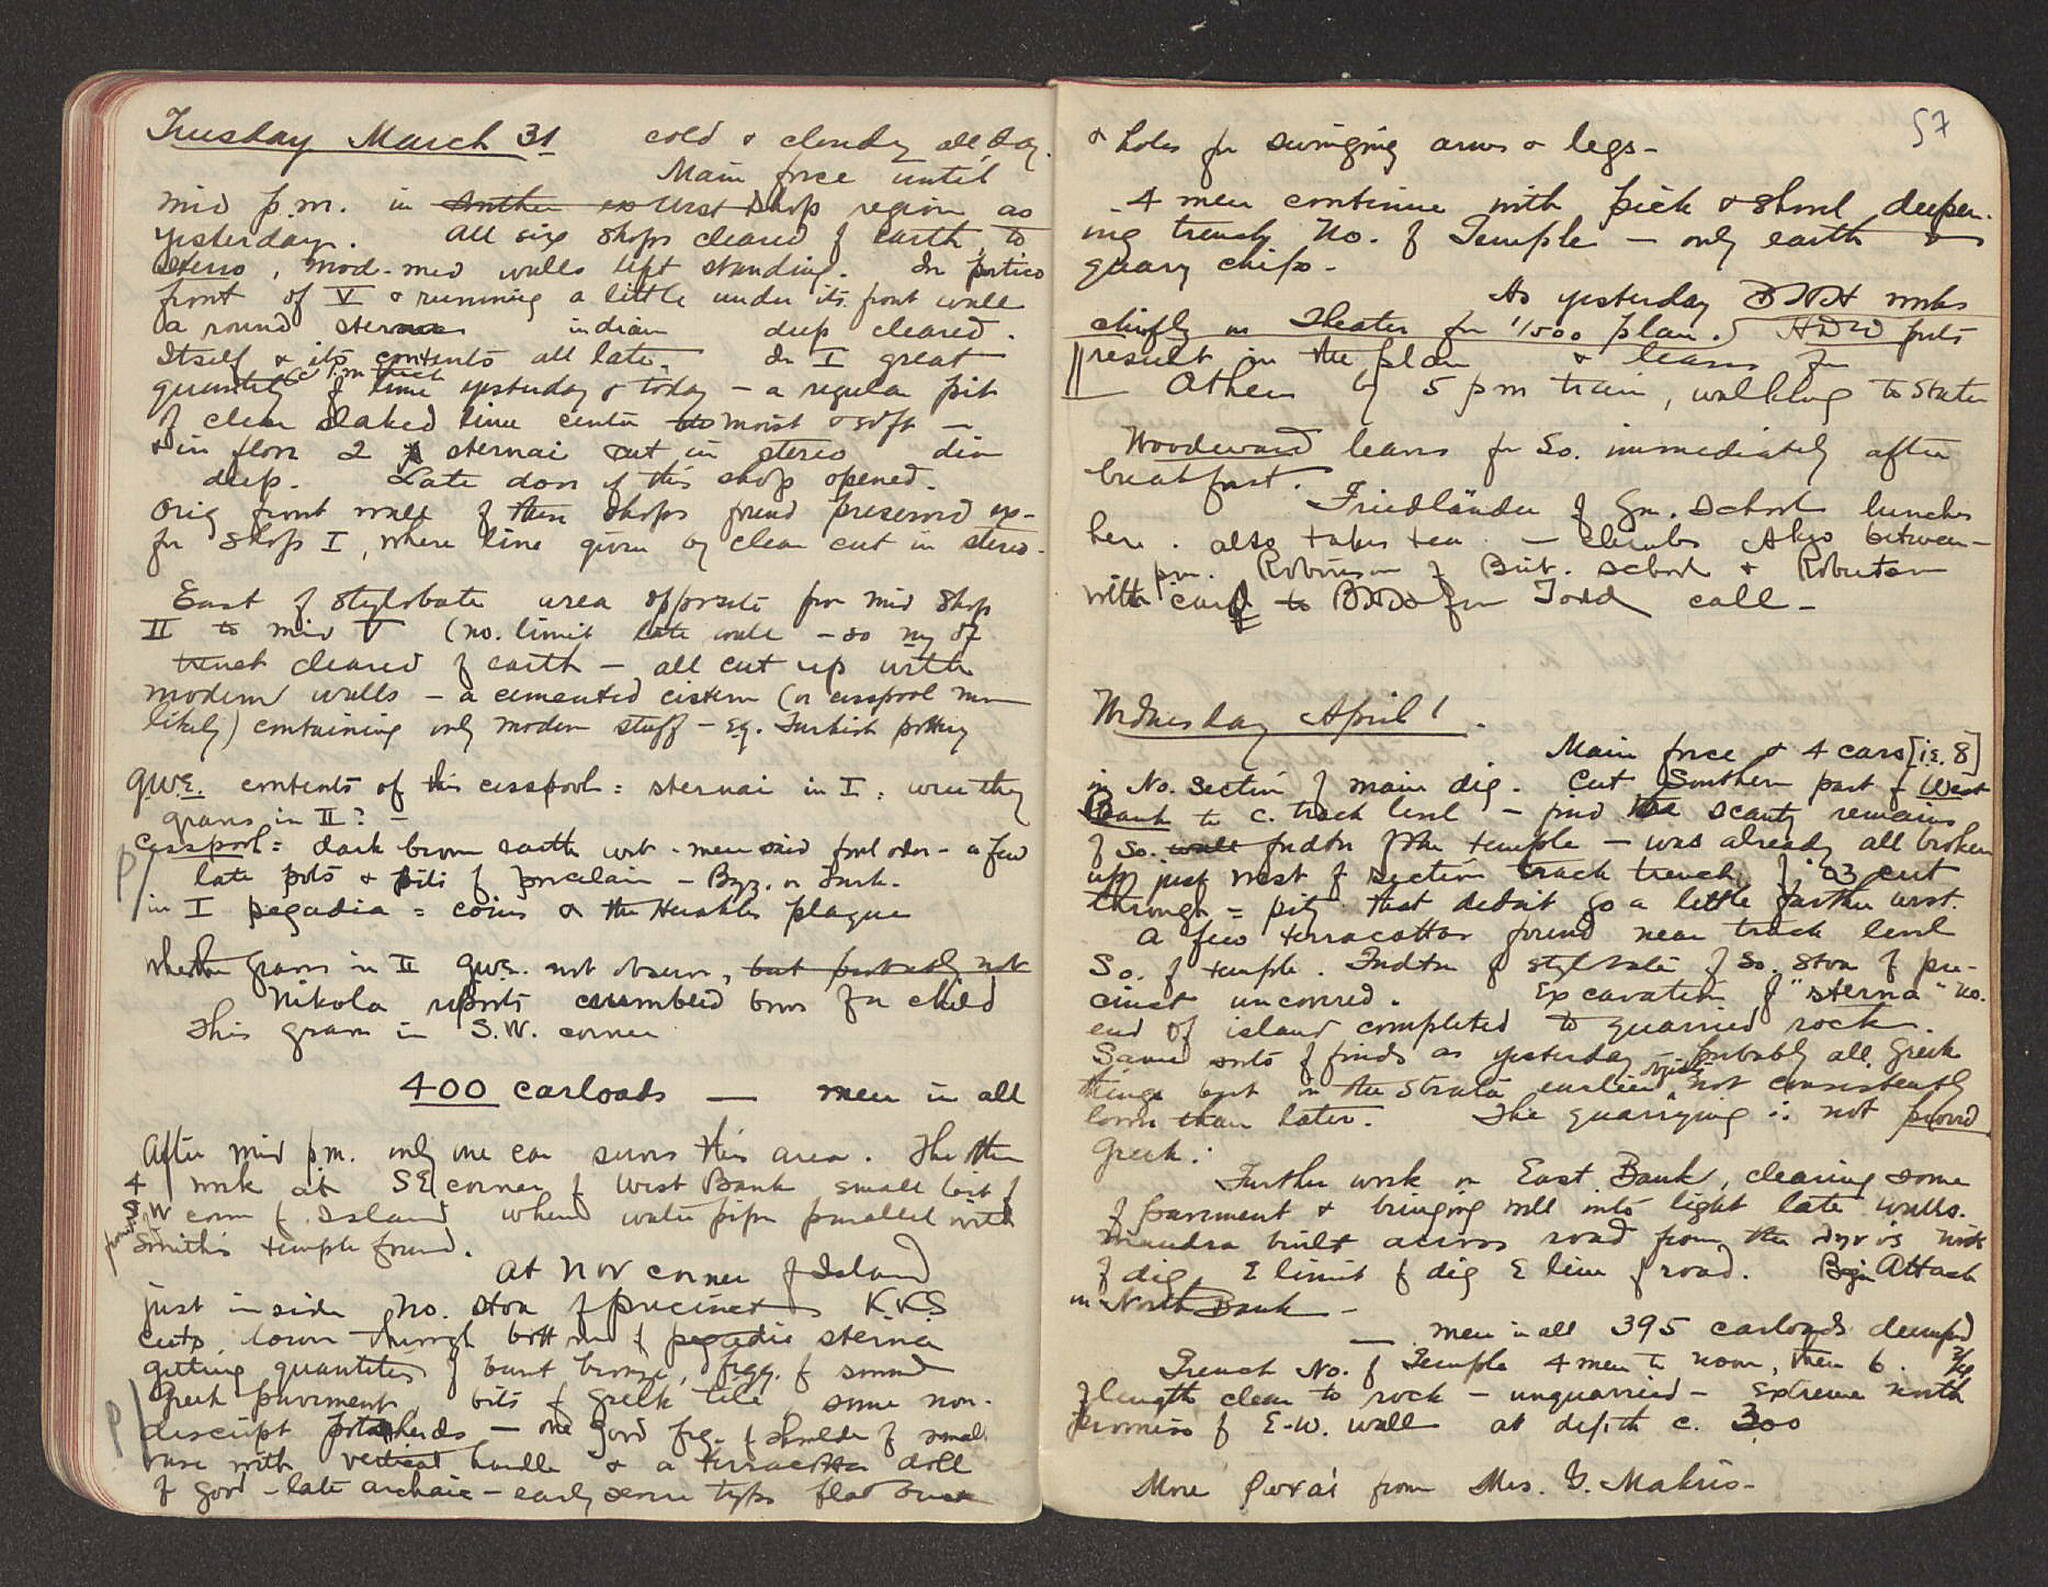 Tuesday March 31 cold & cloudy all day.
Main force until
mid p.m. in West Shop region as
yesterday. All six shops cleared of earth to
stereo, mod-med walls left standing. In portico
front of V & running a little under its front wall
a round sterna in diam deep cleared.
Itself & its contents all late. In I great
quantity of lime yesterday & today — a regular pit
of clean slaked lime center moist & soft —
& in floor 2 sternai cut in stereo dia
deep. Late door of this shop opened.
Orig front wall of these shops found preserved ex-
for Shop I, where line given by clean cut in stereo.
East of stylobate area opposite from mid Shop
II to mid V (no. limit late wall — so
trench cleared of earth — all cut up with
modern walls — a cemented cistern (or cesspool more
likely) containing only modern stuff — eg. Turkish pottery
GWE. contents of this cesspool: sternai in I: were they
graves in II? —
Cesspool = dark brown earth wet - men said foul odor - a few
late pots & bits of porcelain — Byz. or Turk.
in I pegadia = coins & the Herakles plaque
Whether graves in II GWE. not observe, but probably not
Nikola reports crumbled bones of a child
This grave in S.W. corner
400 carloads — men in all
After mid p.m. only one car serves this area. The other
4 work at SE corner of West Bank small bit of
S.W corner of Island where water pipe parallel with
Smith's temple found.
At NW corner of Island
just inside No. stoa of precinct KKS
cuts down through bottom of pegadia sterna
getting quantities of burnt bronze, frgg. of
Greek pavement, bits of Greek tile, some non-
descript potsherds — one good frg. of shoulder of small
vase with vertical handle & a terracotta doll
of good - late archaic - early severe type flat back
57
& holes for swinging arms & legs -
4 men continue with pick & shovel deepen-
ing trench No. of Temple — only earth &
quarry chips -
As yesterday BHH works
chiefly on Theater for 1/500 plan. HDW puts
result in the plan & leaves for
Athens by 5 pm train, walking to station
Woodward leaves for So. immediately after
breakfast.
Friedländer of Gn. School lunches
here. also takes tea — climbs Akro between —
p.m. Robinson of Brit. School & Robertson
with card to from Todd call —
Wednesday April 1.
Main force & 4 cars [i.e. 8]
in No. Section of main dig. Cut Southern part of West
Bank to c. track level — find scanty remains
of So. wall fndtn of the temple — was already all broken
up just west of section track trench of '03 cut
through = pity that didn't go a little farther west.
A few terracottas found near track level
So. of temple. Fndtn of stylobate of So. stoa of pre-
cinct uncovered. Excavation of "sterna" no.
end of island completed to quarried rock.
Same sorts of finds as yesterday — probably all Greek
things but in the strata earlier objects not consistently
lower than later. The quarrying ∴ not proved
Greek.
Further work on East Bank, clearing some
of pavement & bringing well into light late walls.
Mandra built across road from the nick
of dig, E limit of dig E line of road. Begin Attack
in North Bank —
— men in all 395 carloads dumped
Trench No. of Temple 4 men to noon, then 6.
of length clear to rock — unquarried — extreme north
promise of E-W. wall at depth c. 300
More from Mrs. G. Makris -